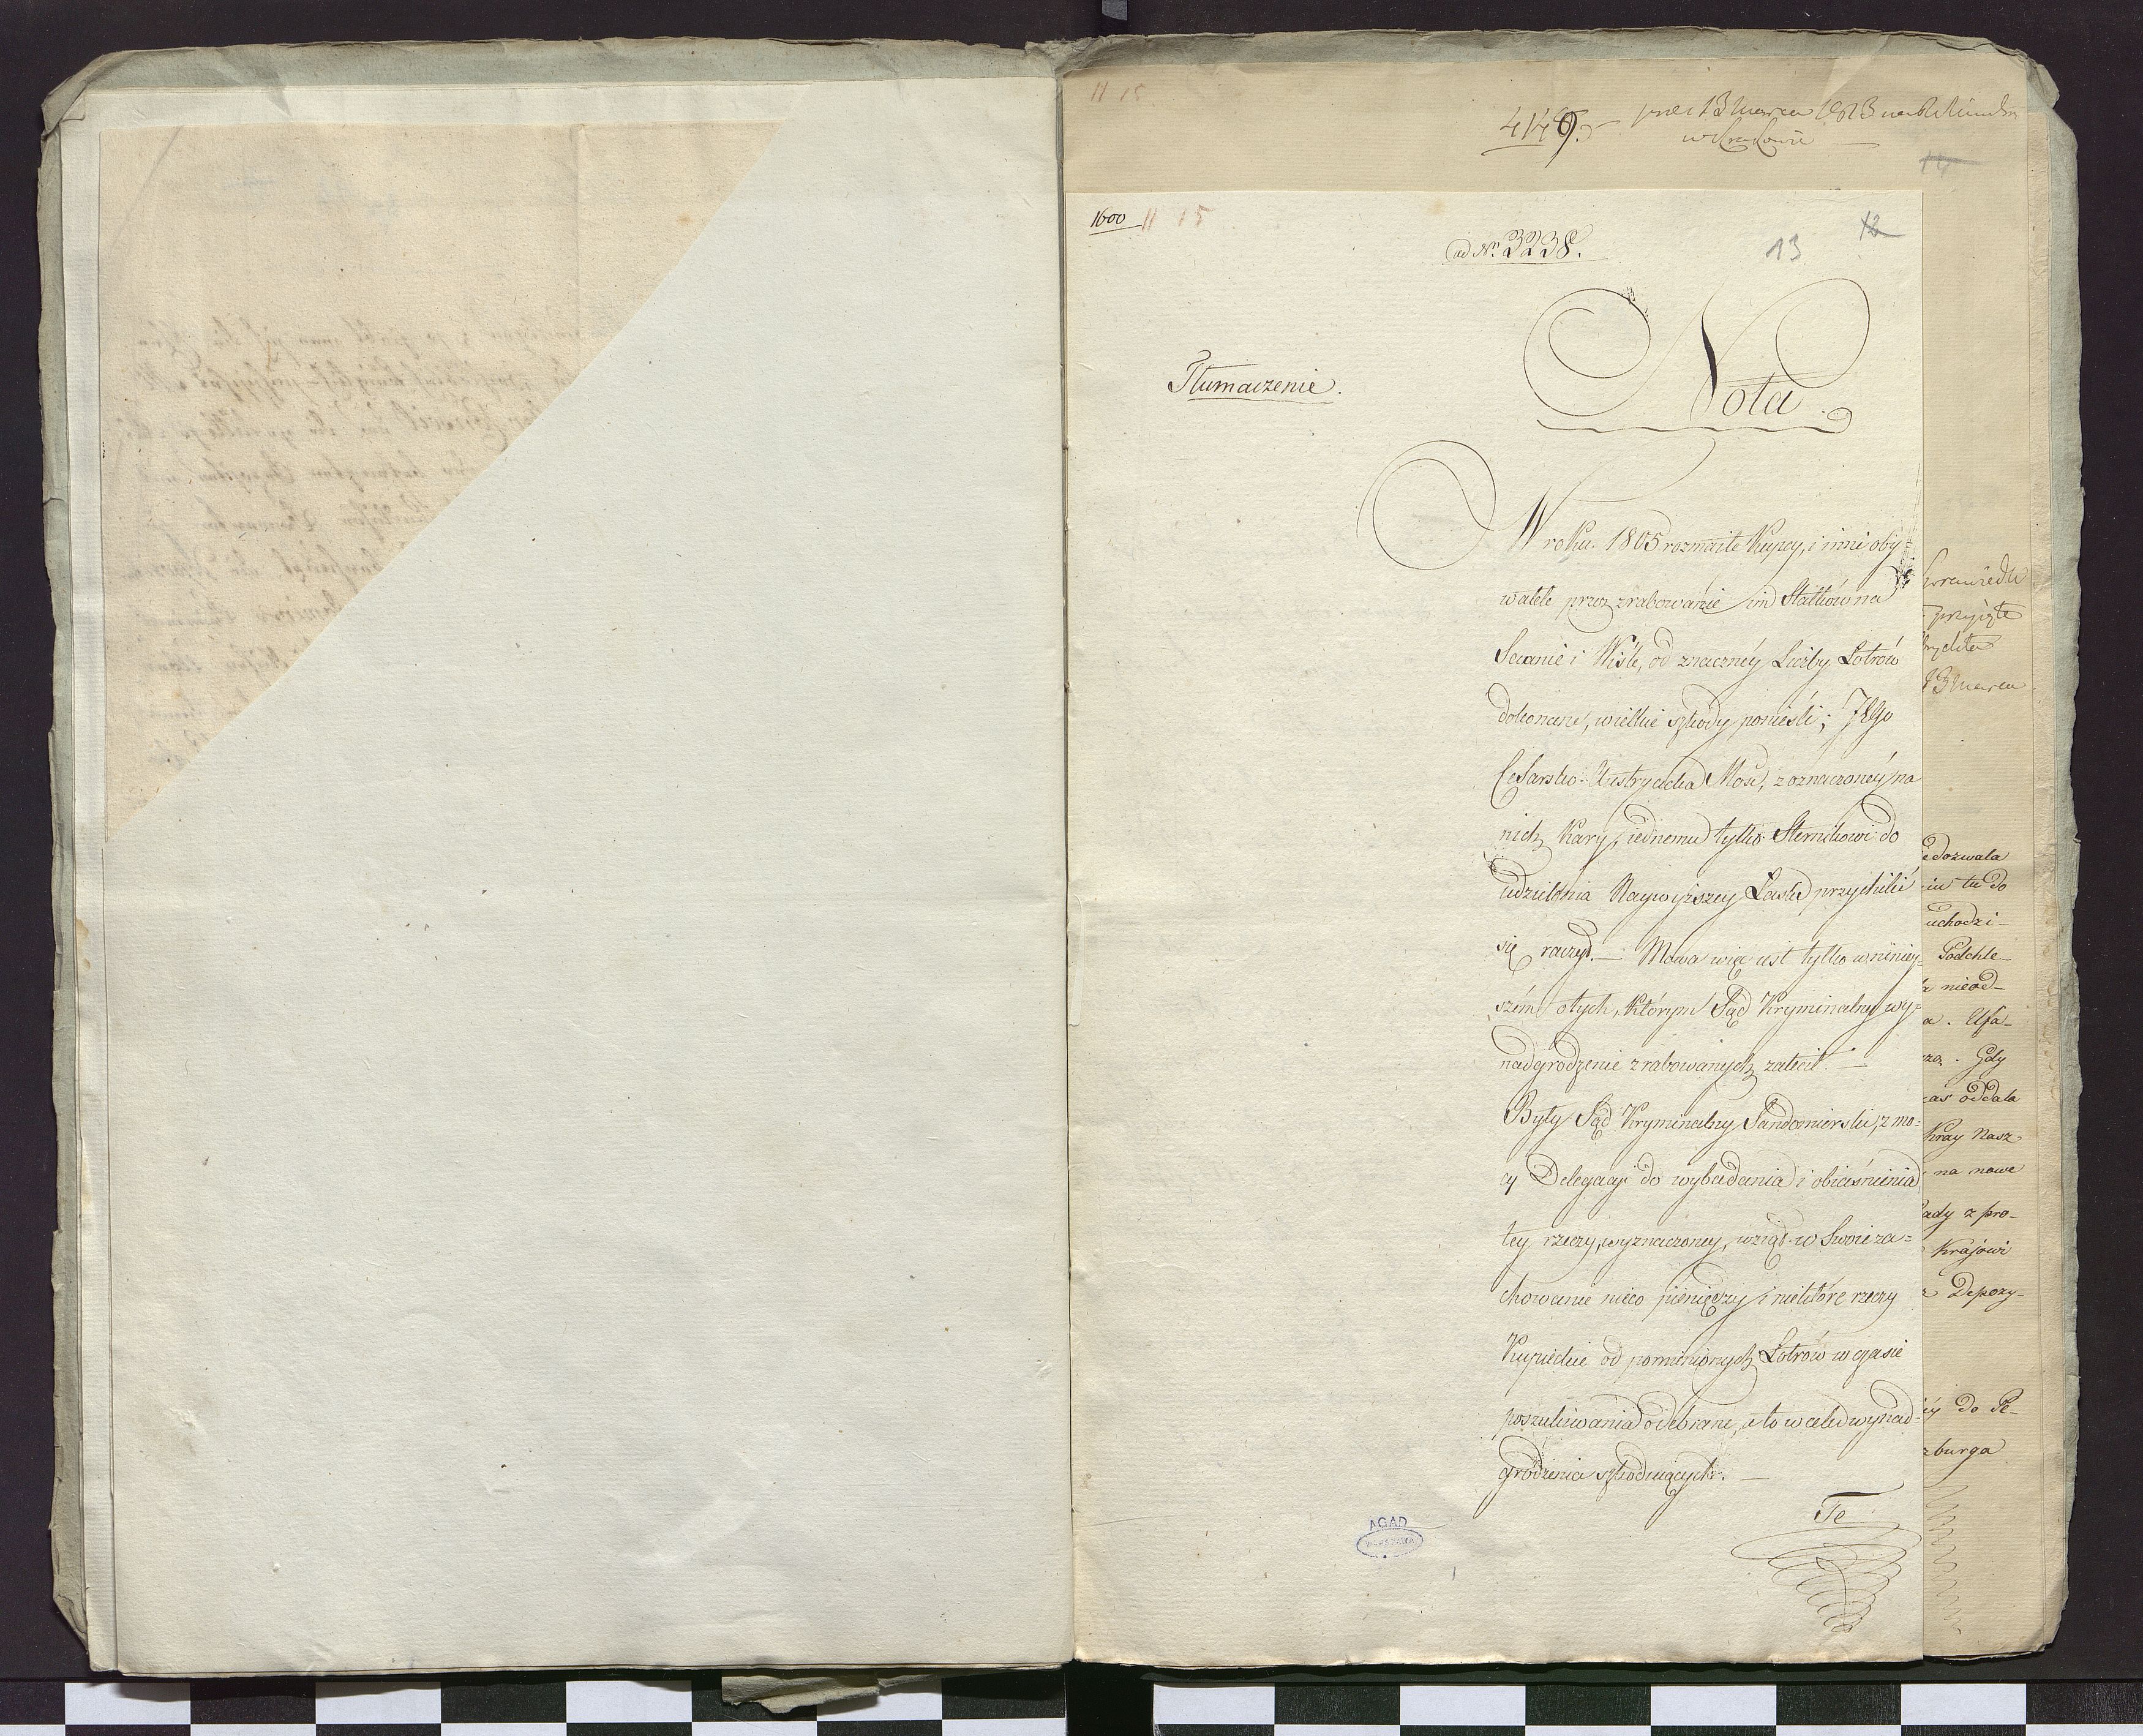 11 15
4149.
13 Marca 1813
w Krakowie
14
1600 11 15
ad Nr. 3238.
13 12
Nota
Tłumaczenie.
W roku 1805 rozmaite Kupcy, i inni oby=
watele przez zrabowanie im Statków na
Seanie i Wiśle, od znacznéy Liczby Łotrów
dokonane, wielkie szkody ponieśli; JEgo
Cesarsko-Austryacka Mość, z oznaczonéy na
nich Kary, iednemu tylko Sternikowi do
udzielenia Naywyższey Łaski przychilić
się raczył. — Mowa więc iest tylko w niniey=
szém o tych, którym Sąd Kryminalny wy=
nadgrodzenie zrabowanych zalecił. —
Były Sąd Kryminalny Sandomierski, z mo=
cy Delegacyi do wybadania i obiaśnienia
tey rzeczy, wyznaczoney, wziął w Swoie za=
chowanie nieco pieniędzy i niektóre rzeczy
Kupieckie od pomienionych Łotrów w czasie
poszukiwania odebrane, a to w celu wynad=
grodzenia szkoduiących. —
Te
AGAD
WARSZAWA
przyięte
13 Marca
dozwala
iu tu do
uchodzi-
Podchle-
nieod-
a. Ufa-
Gdy
as oddala
Kray Nasz
na nowe
ady z pro-
Krajowi
Depozy-
do Pe-
zburga